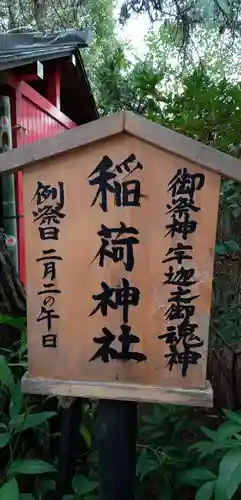 御祭神 宇迦之御魂神
稲荷神社
例祭日 二月二の午